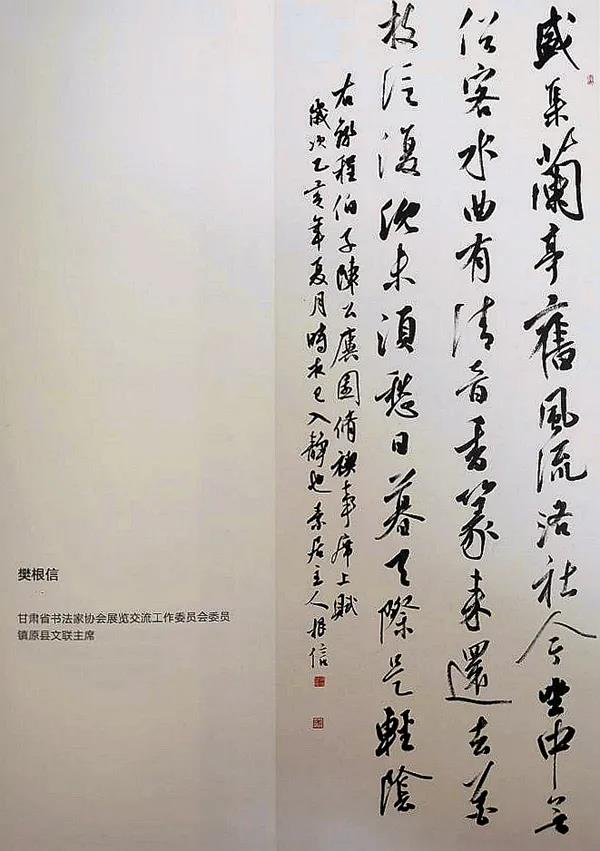 盛集蘭亭舊風流洛社今坐中無
俗客水曲有清音香篆来還去花
枝泛復沈未須愁日暮天際是輕陰
右録程伯子陳公廙園脩禊事席上賦
歲次乙亥年夏月時夜已入静也素居主人根信
樊根信
甘肃省书法家协会展览交流工作委员会委员
镇原县文联主席